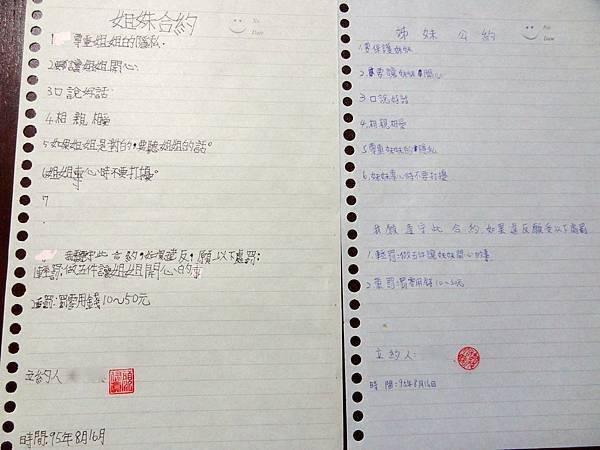 姐妹合約
尊重姐姐的隱私.
2要讓姐姐開心.
3口說好話.
4.相親相愛
5如果姐姐是對的,要聽姐姐的話。
6姐姐專心時不要打擾。
7
此合約,如有違反,願以下處罰:
1輕罰:做五件讓姐姐開心的事
2重罰:罰零用錢10~50元
立約人
時間:95年8月16日
No
Date
姊妹公約
1.要保護妹妹
2.要讓妹妹開心
3口說好話
4.相親相愛
5尊重妹妹的隱私
6.妹妹專心時不要打擾
我願遵守此合約如果違反願受以下處罰
1.輕罰:做五件讓妹妹開心的事
2重罰:罰零用錢10~50元
立約人:
時間:95年8月16日
No
Date